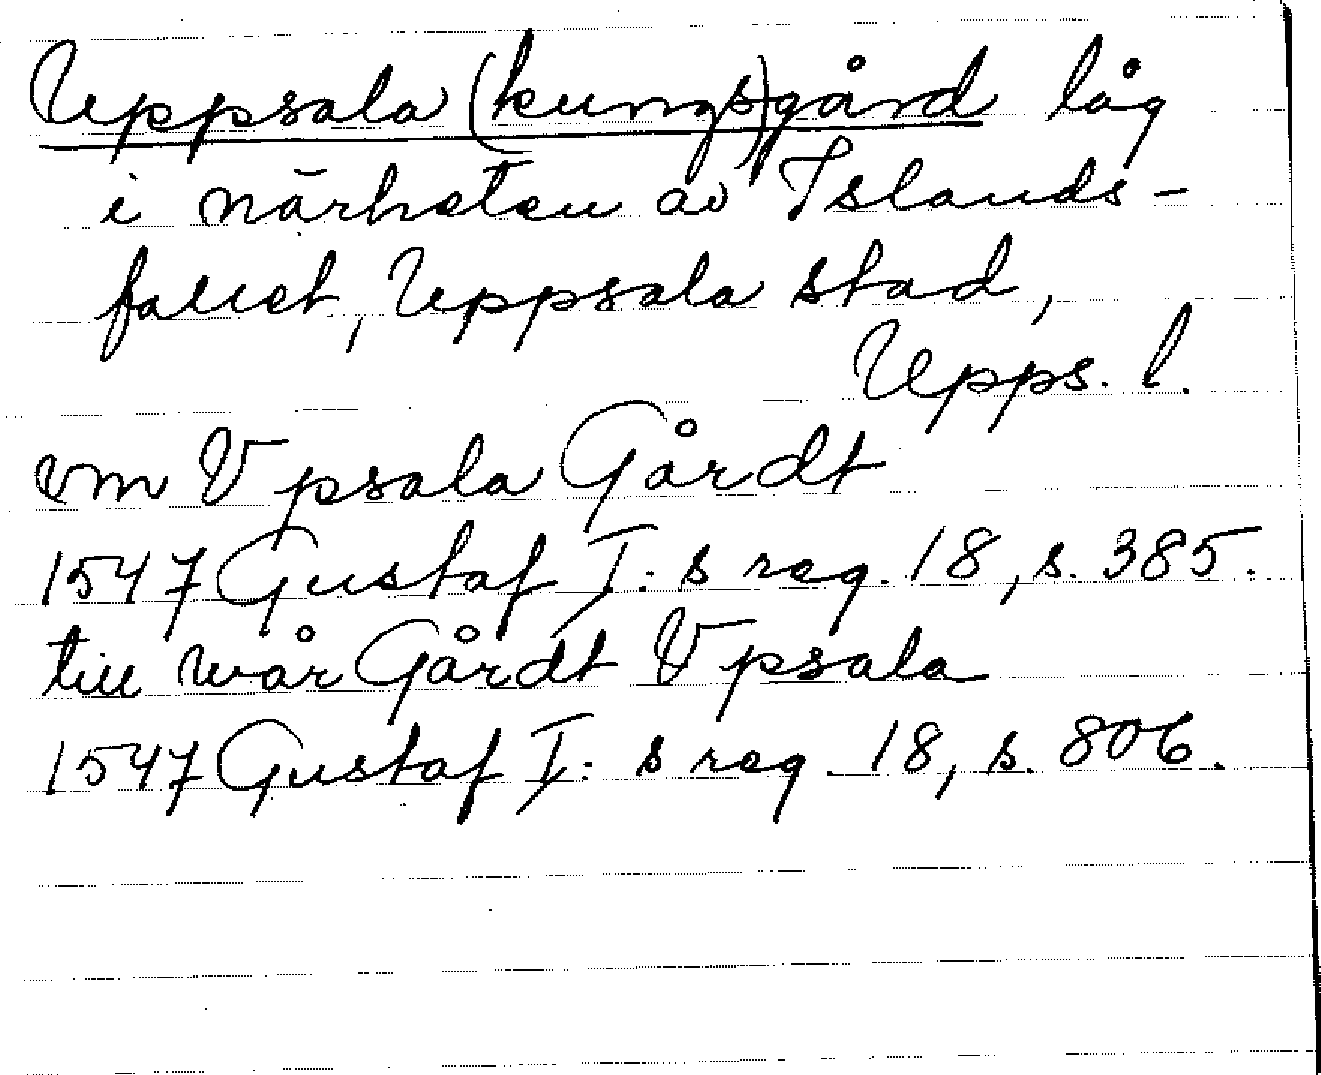 Uppsala (kungs)gård låg
i närheten av Islands-
fallet, Uppsala stad,
Upps. l.
vm Vpsala Gårdt
1547 Gustaf I:s reg. 18, s. 385.
till wår Gårdt Vpsala
1547 Gustaf I:s reg. 18, s. 806.